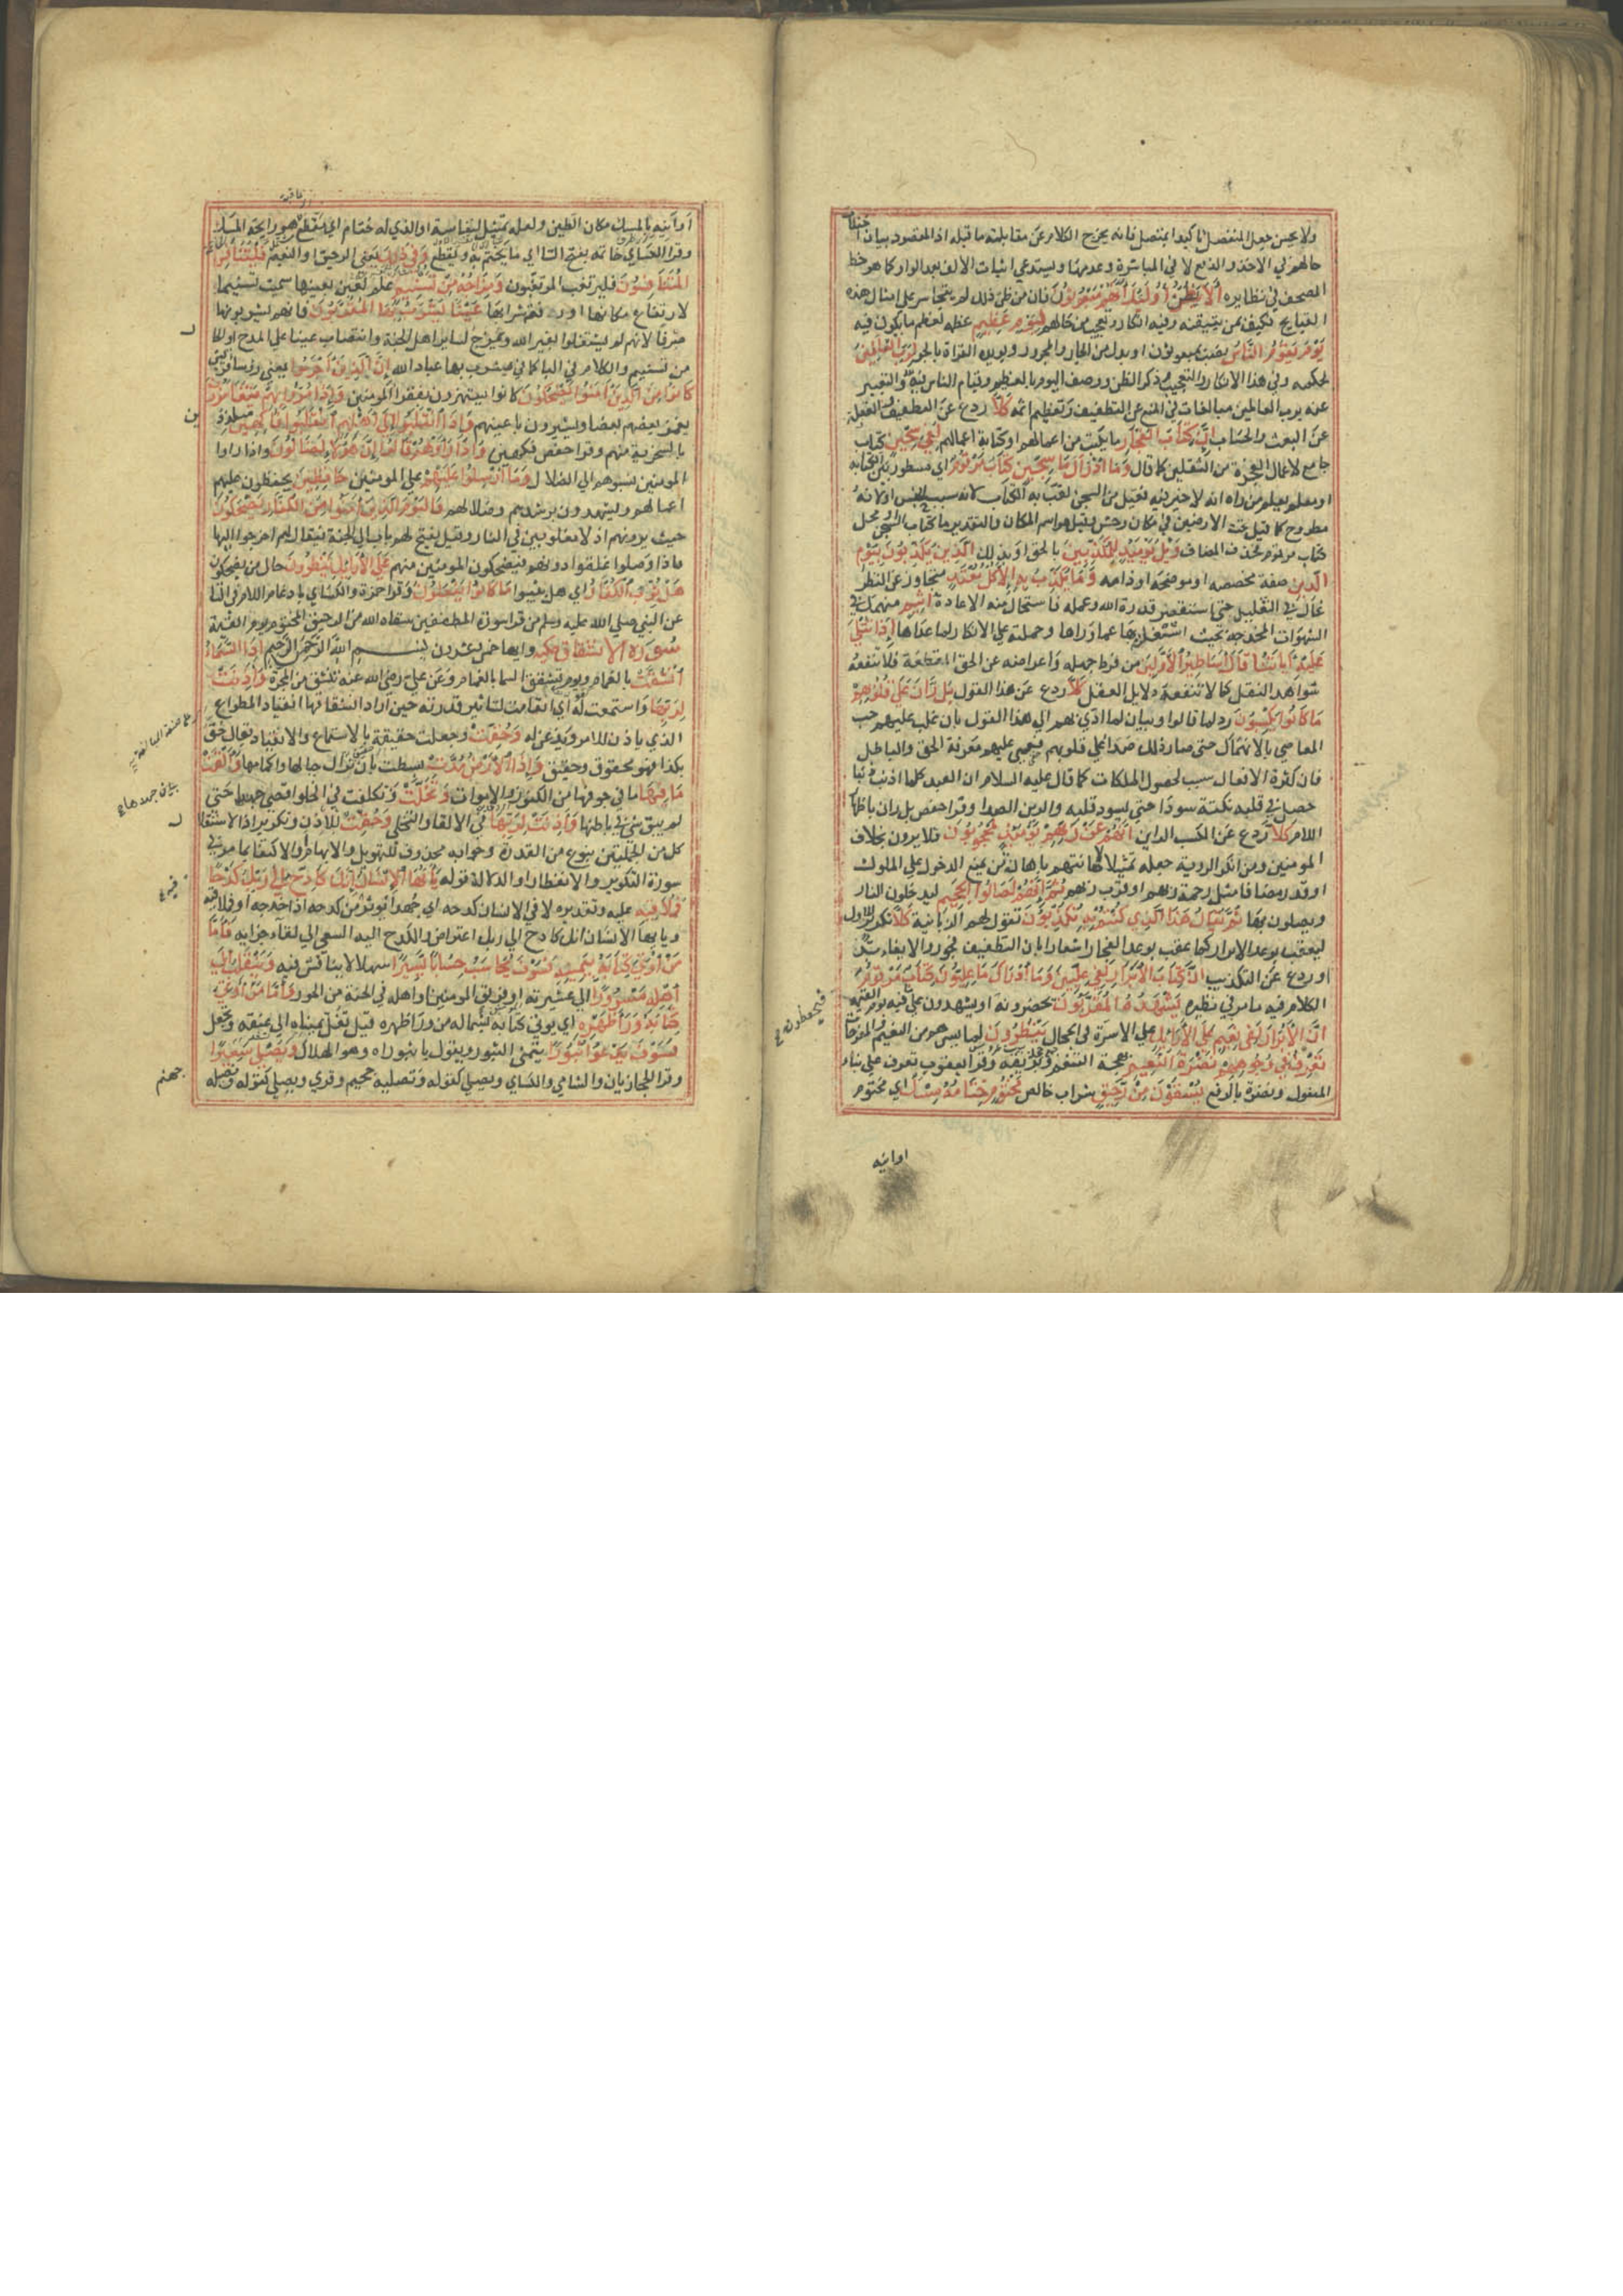 ولا يحسن جعل المنفصل تاكيدا لمتصل فانه يخرج الكلام عن مقابلته ما قبله اذ المقصود بيان اختلاف
حالهم في الاخذ والدفع لا في المباشرة وعدمها ويستدعي اثبات الالف بعد الواو كما هو خط
المصحف في نظايره أَلَا يَظُنُّ أُولَٰئِكَ أَنَّهُمْ مَبْعُوثُونَ فان من ظن ذلك لم يتجاسر على امثال هذه
القبايح فكيف بمن تيقنه وفيه انكار وتعجيب من حالهم لِيَوْمٍ عَظِيمٍ عظمه لعظم ما يكون فيه
يَوْمَ يَقُومُ النَّاسُ نصب بمبعوثون او بدل من الجار والمجرور ويويده القراة بالجر لِرَبِّ الْعَالَمِينَ
لحكمه وفي هذا الانكار والتعجيب وذكر الظن ووصف اليوم بالعظم وقيام الناس فيه والتعبير
عنه برب العالمين مبالغات في المنع عن التطفيف وتعظيم اثمه كَلَّا ردع عن التطفيف والغفلة
عن البعث والحساب إِنَّ كِتَابَ الْفُجَّارِ ما يكتب من اعمالهم او كتابة اعمالهم لَفِي سِجِّينٍ كتاب
جامع لاعمال الفجرة من الثقلين كما قال وَمَا أَدْرَاكَ مَا سِجِّينٌ كِتَابٌ مَرْقُومٌ اي مسطور بين الكتابة
او معلم يعلم من راه انه لا خير فيه فعيل من السجن لقب به الكتاب لانه سبب الحبس او لانه
مطروح كما قيل تحت الارضين في مكان وحش وقيل هو اسم المكان والتقدير ما كتاب السجين او محل
كتاب مرقوم فحذف المضاف وَيْلٌ يَوْمَئِذٍ لِلْمُكَذِّبِينَ بالحق او بذلك الَّذِينَ يُكَذِّبُونَ بِيَوْمِ
الدِّينِ صفة مخصصة او موضحة او ذامة وَمَا يُكَذِّبُ بِهِ إِلَّا كُلُّ مُعْتَدٍ متجاوز عن النظر
غال في التقليد حتى استقصر قدرة الله وعمله فاستحال منه الاعادة أَثِيمٍ منهمك في
الشهوات المخدجة بحيث اشتغل بها عما وراها وحملته على الانكار لما عداها إِذَا تُتْلَى
عَلَيْهِ آيَاتُنَا قَالَ أَسَاطِيرُ الْأَوَّلِينَ من فرط جهله واعراضه عن الحق المقطعة فلا تنفعه
شواهد النقل كما لا تنفعه دلايل العقل كَلَّا ردع عن هذا القول بَلْ رَانَ عَلَى قُلُوبِهِمْ
مَا كَانُوا يَكْسِبُونَ رد لما قالوا وبيان لما ادى بهم الى هذا القول بان غلب عليهم حب
المعاصي بالانهماك حتى صار ذلك صدا على قلوبهم فعمي عليهم معرفة الحق والباطل
فان كثرة الافعال سبب لحصول الملكات كما قال عليه السلام ان العبد كلما اذنب ذنبا
حصل في قلبه نكتة سودا حتى يسود قلبه والرين الصدا وقرا حفص بل ران باظهار
اللام كَلَّا ردع عن الكسب الراين إِنَّهُمْ عَنْ رَبِّهِمْ يَوْمَئِذٍ لَمَحْجُوبُونَ فلا يرون بخلاف
المومنين ومن انكر الروية جعله تمثيلا لاهانتهم باهانة من يمنع الدخول على الملوك
او قدر مضافا مثل رحمة ربهم او قرب ربهم ثُمَّ إِنَّهُمْ لَصَالُوا الْجَحِيمِ ليدخلون النار
ويصلون بها ثُمَّ يُقَالُ هَذَا الَّذِي كُنْتُمْ بِهِ تُكَذِّبُونَ تقول لهم الزبانية كَلَّا تكرير للاول
ليعقب بوعد الابرار كما عقب بوعد الفجار اشعارا بان التطفيف فجور والايفاء بر
او ردع عن التكذيب إِنَّ كِتَابَ الْأَبْرَارِ لَفِي عِلِّيِّينَ وَمَا أَدْرَاكَ مَا عِلِّيُّونَ كِتَابٌ مَرْقُومٌ
الكلام فيه ما مر في نظيره يَشْهَدُهُ الْمُقَرَّبُونَ يحضرونه او يشهدون على ما فيه يوم القيمة
إِنَّ الْأَبْرَارَ لَفِي نَعِيمٍ عَلَى الْأَرَائِكِ على الاسرة في الحجال يَنْظُرُونَ الى ما يسرهم من النعيم والمتفرجات
تَعْرِفُ فِي وُجُوهِهِمْ نَضْرَةَ النَّعِيمِ بهجة التنعم وبريقه وقرا يعقوب تعرف على بناء
المفعول ونضرة بالرفع يُسْقَوْنَ مِنْ رَحِيقٍ شراب خالص مَخْتُومٍ خِتَامُهُ مِسْكٌ اي مختوم
اوانيه
فيحفظونه
اوانيه بالمسك مكان الطين ولعله تمثيل لنفاسته او الذي له ختام اي مقطع هو رايحة المسك
وقرا الكساي خاتمه بفتح التا اي ما يختم به ويقطع وَفِي ذَلِكَ يعني الرحيق او النعيم فَلْيَتَنَافَسِ
الْمُتَنَافِسُونَ فليرتغب المرتغبون وَمِزَاجُهُ مِنْ تَسْنِيمٍ علم لعين بعينها سميت تسنيما
لارتفاع مكانها او رفعة شرابها عَيْنًا يَشْرَبُ بِهَا الْمُقَرَّبُونَ فانهم يشربونها
صرفا لانهم لم يشتغلوا بغير الله وتمزج لساير اهل الجنة وانتصاب عينا على المدح او الحال
من تسنيم والكلام في البا كما في يشرب بها عباد الله إِنَّ الَّذِينَ أَجْرَمُوا يعني رؤسا قريش
كَانُوا مِنَ الَّذِينَ آمَنُوا يَضْحَكُونَ كانوا يستهزون بفقرا المومنين وَإِذَا مَرُّوا بِهِمْ يَتَغَامَزُونَ
يغمز بعضهم بعضا ويشيرون باعينهم وَإِذَا انْقَلَبُوا إِلَى أَهْلِهِمُ انْقَلَبُوا فَاكِهِينَ ملتذذين
بالسخرية منهم وقرا حفص فكهين وَإِذَا رَأَوْهُمْ قَالُوا إِنَّ هَؤُلَاءِ لَضَالُّونَ واذا راوا
المومنين نسبوهم الى الضلال وَمَا أُرْسِلُوا عَلَيْهِمْ على المومنين حَافِظِينَ يحفظون عليهم
اعمالهم ويشهدون برشدهم وضلالهم فَالْيَوْمَ الَّذِينَ آمَنُوا مِنَ الْكُفَّارِ يَضْحَكُونَ
حيث يرونهم اذلا مغلوبين في النار وقيل يفتح لهم باب الى الجنة فيقال لهم اخرجوا اليها
فاذا وصلوا غلقوا دونهم فيضحكون المومنين منهم عَلَى الْأَرَائِكِ يَنْظُرُونَ حال من يضحكون
هَلْ ثُوِّبَ الْكُفَّارُ اي هل يثيبوا مَا كَانُوا يَفْعَلُونَ وقرا حمزة والكساي بادغام اللام في الثا
عن النبي صلى الله عليه وسلم من قرا سورة المطففين سقاه الله من الرحيق المختوم يوم القيمة
سورة الانشقاق مكيه وايها خمس وعشرون بسم الله الرحمن الرحيم إِذَا السَّمَاءُ
انْشَقَّتْ بالغمام ويوم تشقق السما بالغمام وعن علي رضي الله عنه تنشق من المجرة وَأَذِنَتْ
لِرَبِّهَا واستمعت له اي انقادت لتاثير قدرته حين اراد انشقاقها انقياد المطواع
الذي ياذن للامر ويذعن له وَحُقَّتْ وجعلت حقيقة بالاستماع والانقياد يقال حق
بكذا فهو محقوق وحقيق وَإِذَا الْأَرْضُ مُدَّتْ بسطت بان تزال جبالها واكامها وَأَلْقَتْ
مَا فِيهَا ما في جوفها من الكنوز والاموات وَتَخَلَّتْ وتكلفت في الخلو اقصى جهدها حتى
لم يبق شي في باطنها وَأَذِنَتْ لِرَبِّهَا في الالقا والتخلي وَحُقَّتْ للاذن وتكرير اذا لاستقلال
كل من الجملتين بنوع من القدرة وجوابه محذوف للتهويل والابهام او الاكتفا بما مر في
سورة التكوير والانفطار او لدلالة قوله يَا أَيُّهَا الْإِنْسَانُ إِنَّكَ كَادِحٌ إِلَى رَبِّكَ كَدْحًا
فَمُلَاقِيهِ عليه وتقديره لاقى الانسان كدحه اي جهدا يوثر من كدحه اذا خدجه او فملاقيه
ويايها الانسان انك كادح الى ربك اعتراض والكدح اليه السعي الى لقاء جزايه فَأَمَّا
مَنْ أُوتِيَ كِتَابَهُ بِيَمِينِهِ فَسَوْفَ يُحَاسَبُ حِسَابًا يَسِيرًا سهلا لا يناقش فيه وَيَنْقَلِبُ إِلَى
أَهْلِهِ مَسْرُورًا الى عشيرته او فريق المومنين او اهله في الجنة من الحور وَأَمَّا مَنْ أُوتِيَ
كِتَابَهُ وَرَاءَ ظَهْرِهِ اي يوتى كتابه بشماله من ورا ظهره قيل تغل يمناه الى عنقه وتجعل
فَسَوْفَ يَدْعُو ثُبُورًا يتمنى الثبور ويقول يا ثبوراه وهو الهلاك وَيَصْلَى سَعِيرًا
وقرا الحجازيان والشامي والكساي ويصلى كقوله وتصلية جحيم وقري ويصلى كقوله ونصله
جهنم